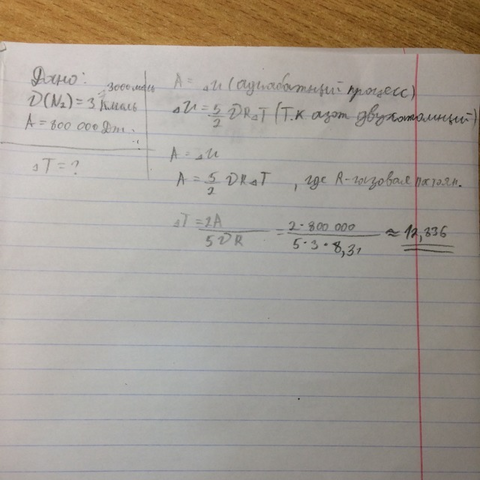 Дано:
3000 моль
𝜈(N₂) = 3 Кмоль
A = 800 000 Дж.
ΔT = ?
A = ΔU (адиабатный процесс)
ΔU = 5/2 𝜈RΔT (Т.к азот двухатомный)
A = ΔU
A = 5/2 𝜈RΔT , где R-газовая постоян.
ΔT = 2A / 5𝜈R = 2·800 000 / 5·3·8,31 ≈ 12,836